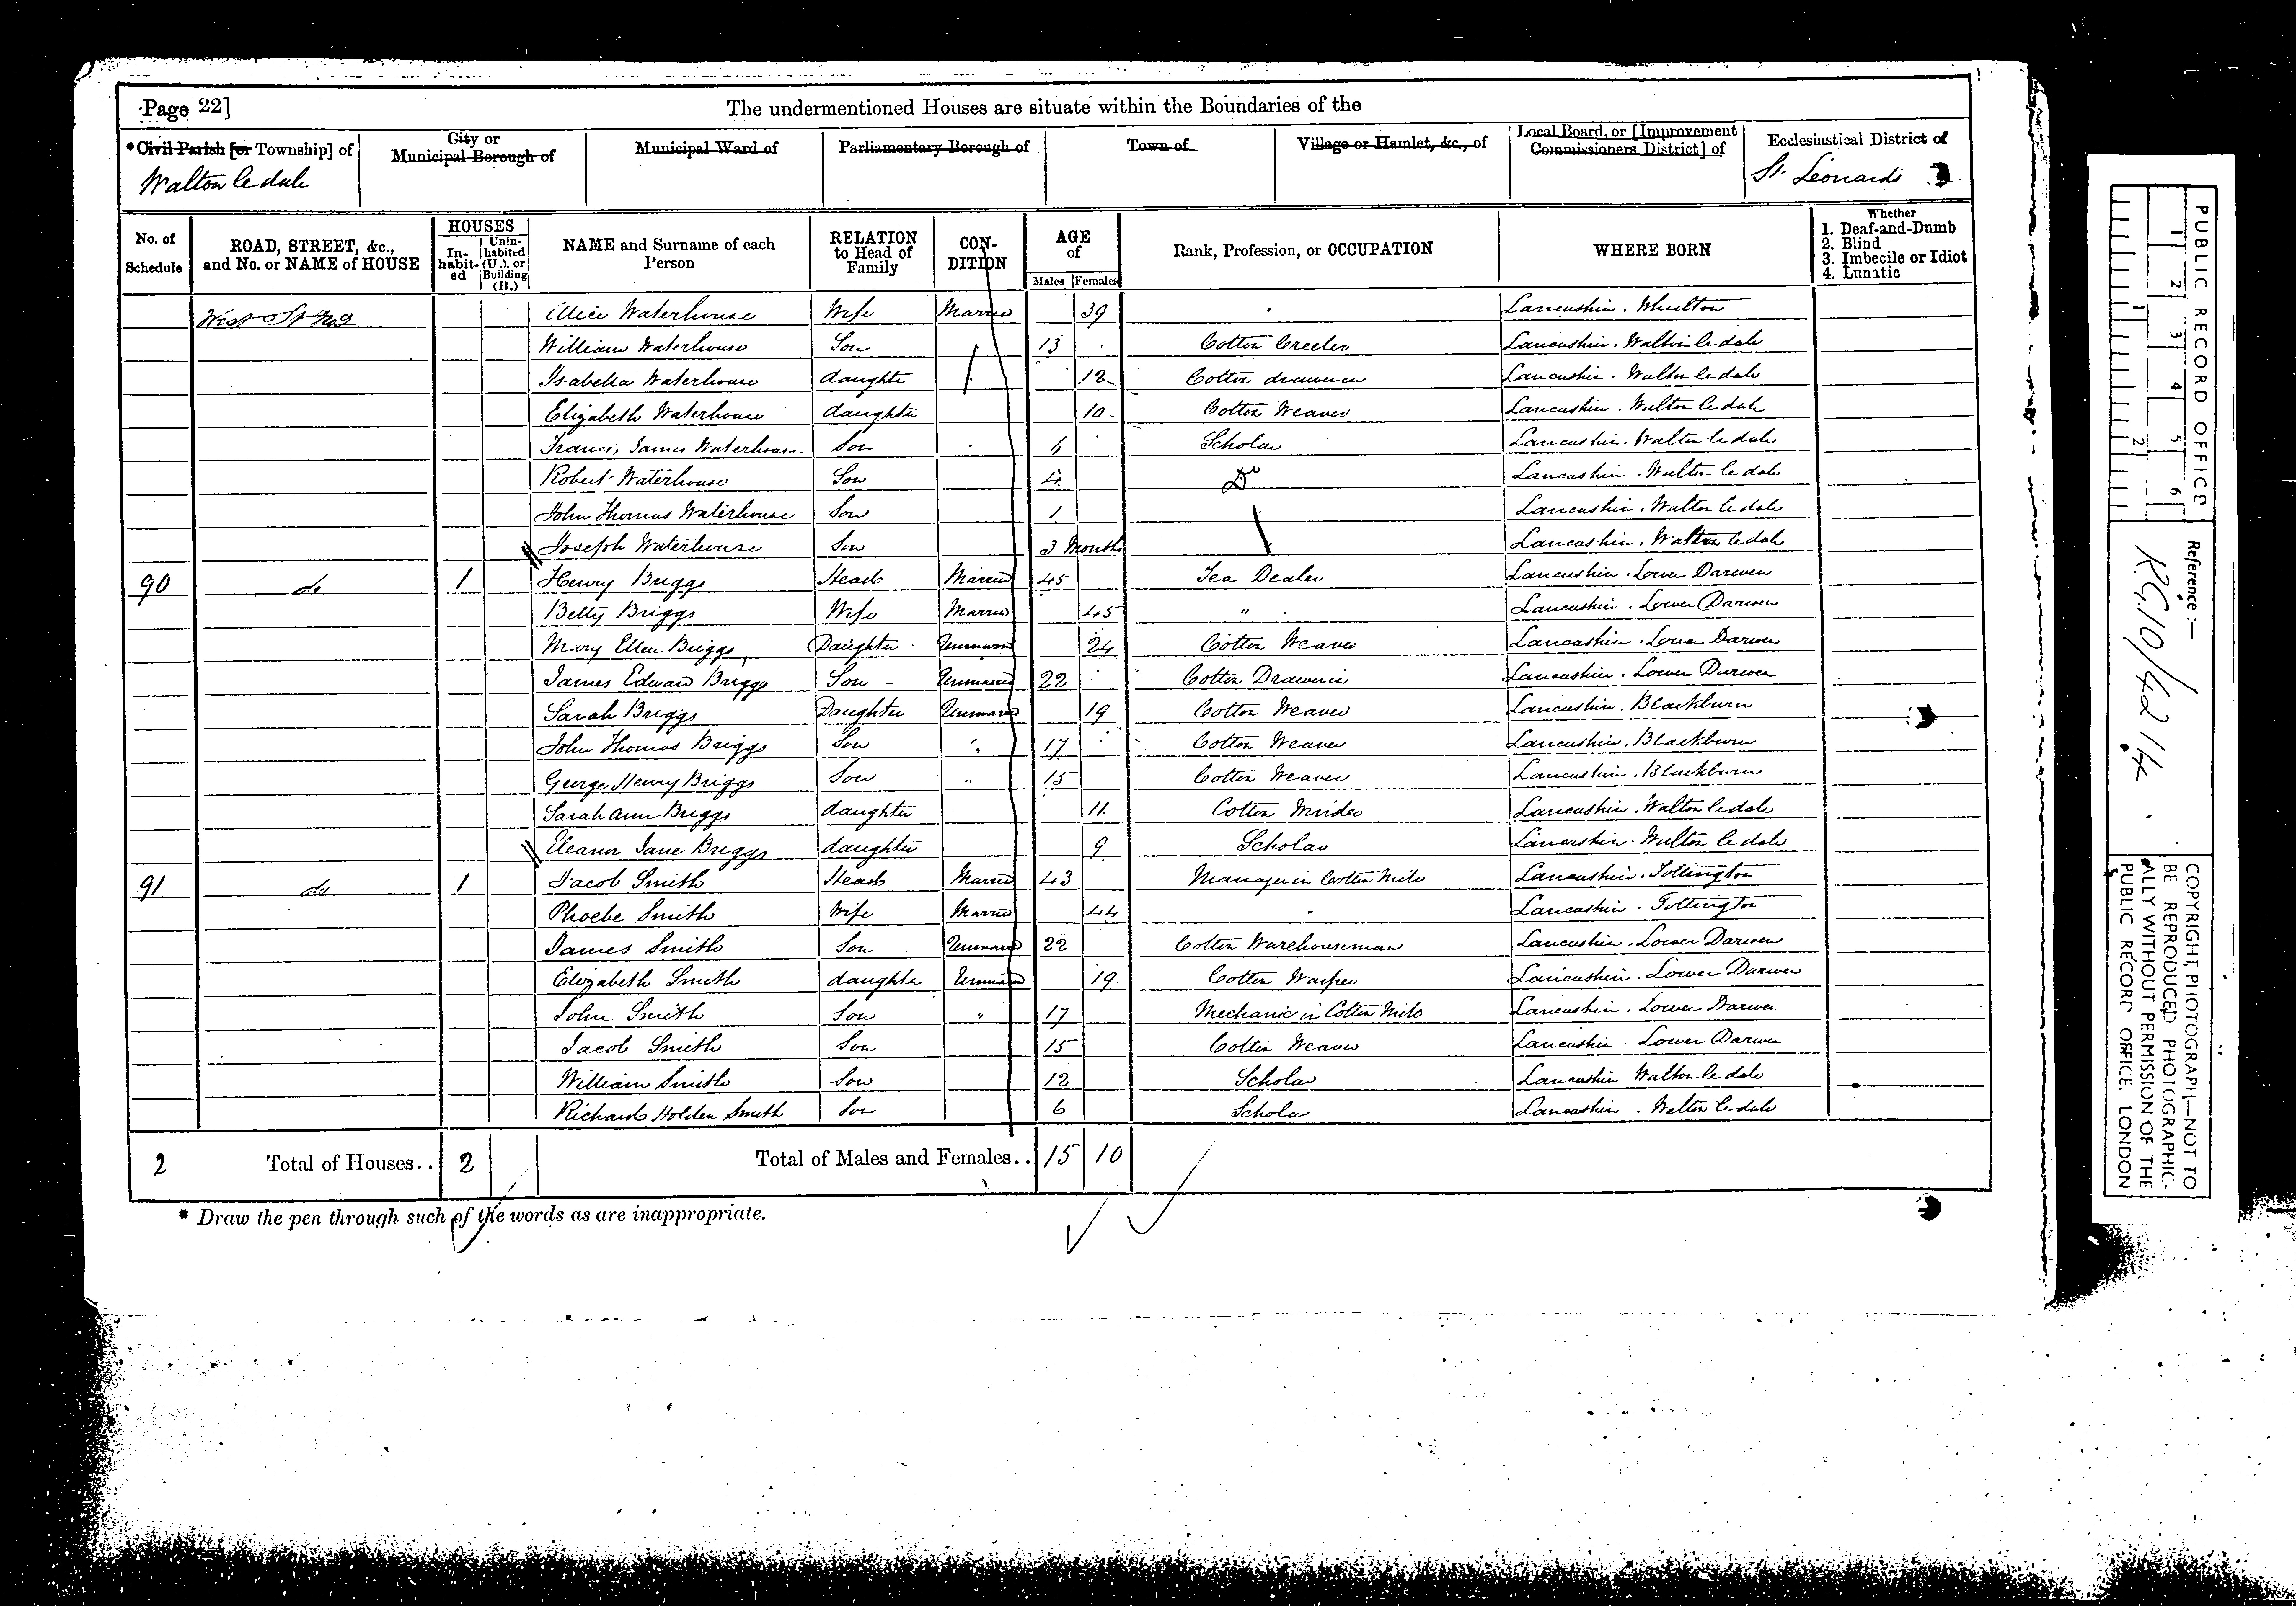 Page 22]
The undermentioned Houses are situate within the Boundaries of the
*Civil Parish [or Township] of
Walton le dale
City or Municipal Borough of
Municipal Ward of
Parliamentary Borough of
Town of
Village or Hamlet, &c., of
Local Board, or [Improvement Commissioners District] of
Ecclesiastical District of
St. Leonards
No. of Schedule
ROAD, STREET, &c., and No. or NAME of HOUSE
HOUSES
In-habit-ed
Unin-habited (U.), or Building (B.)
NAME and Surname of each Person
RELATION to Head of Family
CON-DITION
AGE of
Males Females
Rank, Profession, or OCCUPATION
WHERE BORN
Whether
1. Deaf-and-Dumb
2. Blind
3. Imbecile or Idiot
4. Lunatic
West St Alice Waterhouse Wife Married 39 Lancashire. Wheelton
William Waterhouse Son 13 Cotton Creeler Lancashire. Walton le dale
Isabella Waterhouse daughter 12 Cotton drawer in Lancashire. Walton le dale
Elizabeth Waterhouse daughter 10 Cotton Weaver Lancashire. Walton le dale
Francis James Waterhouse Son Scholar Lancashire. Walton le dale
Robert Waterhouse Son 4 Do Lancashire. Walton le dale
John Thomas Waterhouse Son 1 Lancashire. Walton le dale
Joseph Waterhouse Son 3 Months Lancashire. Walton le dale
90 do 1 Henry Briggs Head Married 45 Tea Dealer Lancashire. Lower Darwen
Betty Briggs Wife Married 45 " Lancashire. Lower Darwen
Mary Ellen Briggs Daughter Unmarried 24 Cotton Weaver Lancashire. Lower Darwen
James Edward Briggs Son Unmarried 22 Cotton Drawer in Lancashire. Lower Darwen
Sarah Briggs Daughter Unmarried 19 Cotton Weaver Lancashire. Blackburn
John Thomas Briggs Son " 17 Cotton Weaver Lancashire. Blackburn
George Henry Briggs Son " 15 Cotton Weaver Lancashire. Blackburn
Sarah Ann Briggs daughter 11 Cotton Winder Lancashire. Walton le dale
Eleanor Jane Briggs daughter 9 Scholar Lancashire. Walton le dale
91 do 1 Jacob Smith Head Married 43 Manager in Cotton Mill Lancashire. Tottington
Phoebe Smith Wife Married 44 Lancashire. Tottington
James Smith Son Unmarried 22 Cotton Warehouseman Lancashire. Lower Darwen
Elizabeth Smith daughter Unmarried 19 Cotton Warper Lancashire. Lower Darwen
John Smith Son " 17 Mechanic in Cotton Mill Lancashire. Lower Darwen
Jacob Smith Son 15 Cotton Weaver Lancashire. Lower Darwen
William Smith Son 12 Scholar Lancashire Walton le dale
Richard Holden Smith Son 6 Scholar Lancashire. Walton le dale
2 Total of Houses.. 2 Total of Males and Females.. 15 10
* Draw the pen through such of the words as are inappropriate.
PUBLIC RECORD OFFICE
1 2 3 4 5 6
1 2
Reference:—
R.G.10/4214
COPYRIGHT PHOTOGRAPH—NOT TO
BE REPRODUCED PHOTOGRAPHIC-
ALLY WITHOUT PERMISSION OF THE
PUBLIC RECORD OFFICE, LONDON